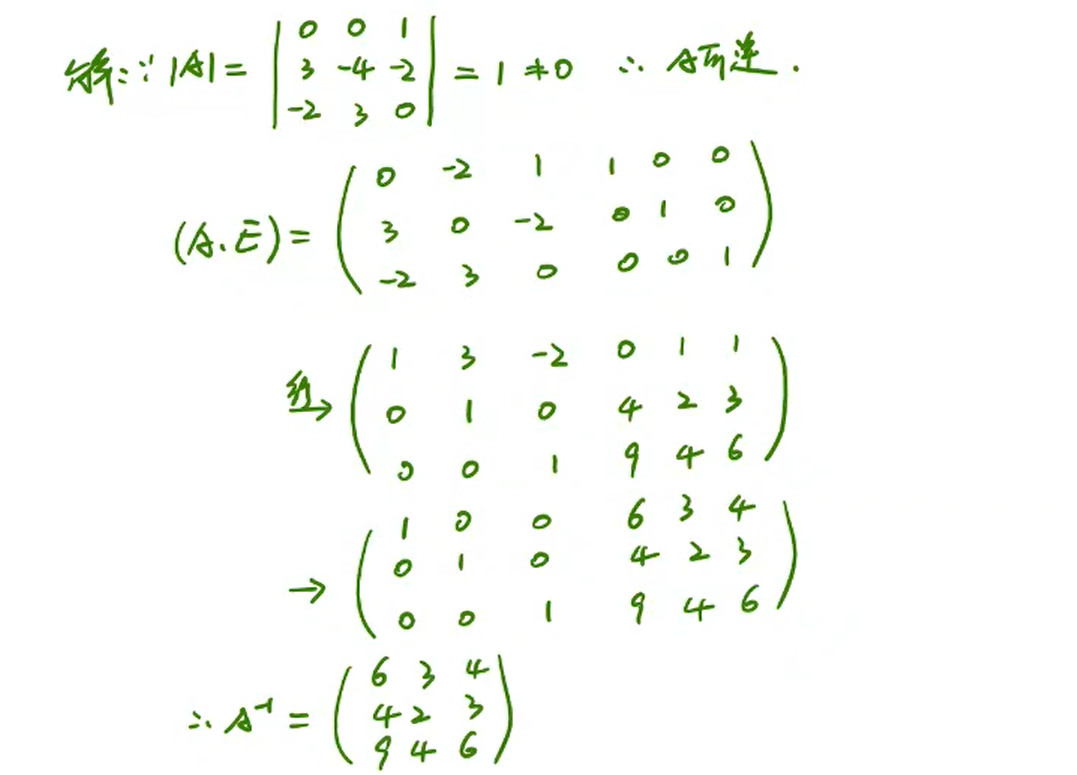 解:∵|A|= | 0 0 1 | = 1 ≠0 ∴ A可逆.
3 -4 -2
-2 3 0
(A.E)= ( 0 -2 1 1 0 0 )
3 0 -2 0 1 0
-2 3 0 0 0 1
→ ( 1 3 -2 0 1 1 )
0 1 0 4 2 3
0 0 1 9 4 6
→ ( 1 0 0 6 3 4 )
0 1 0 4 2 3
0 0 1 9 4 6
∴ A⁻¹ = ( 6 3 4 )
4 2 3
9 4 6